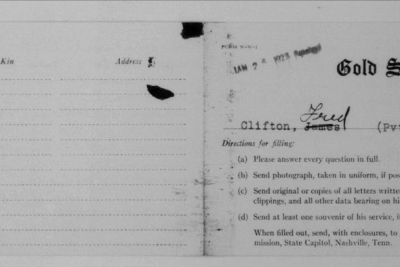 Kin
Address
JAN 2
Gold S
Fred
Clifton, James (Pv
Directions for filing:
(a) Please answer every question in full.
(b) Send photograph, taken in uniform, if pos
(c) Send original or copies of all letters writte
clippings, and all other data bearing on hi
(d) Send at least one souvenir of his service, i
When filled out, send, with enclosures, to
mission, State Capitol, Nashville, Tenn.